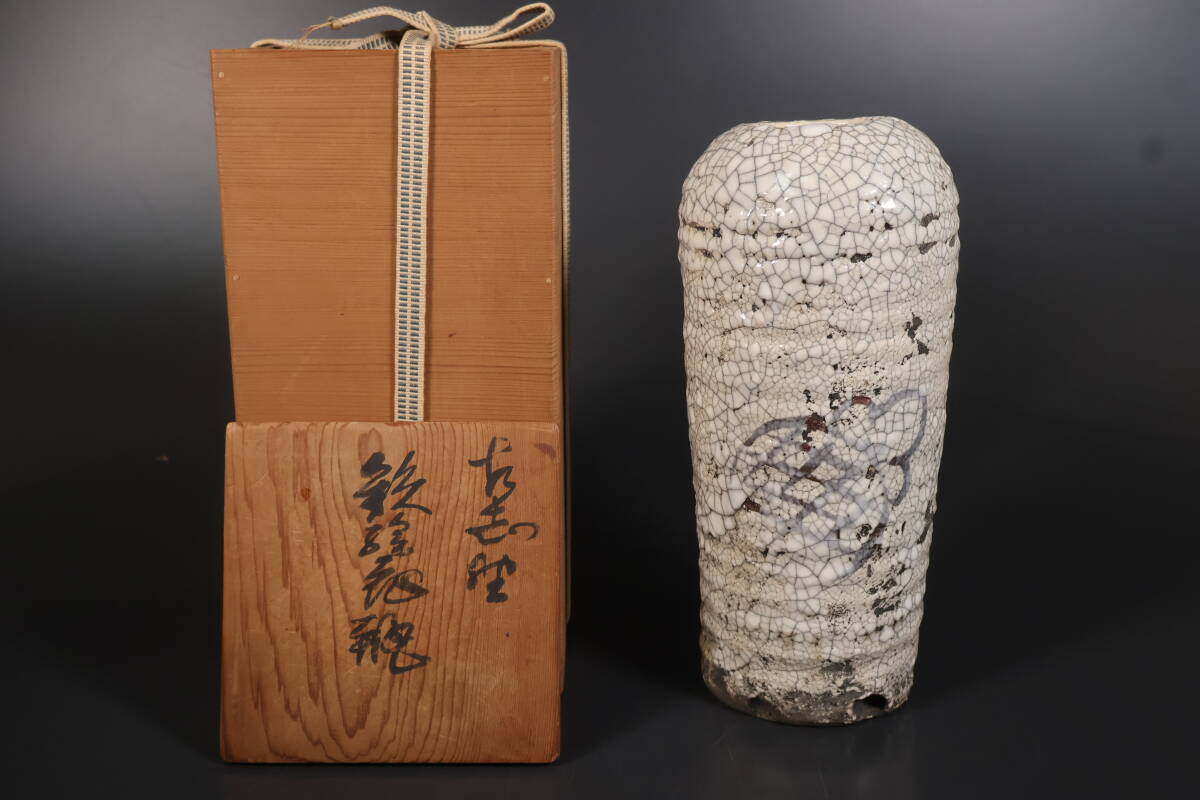 古志野
鉄絵花瓶